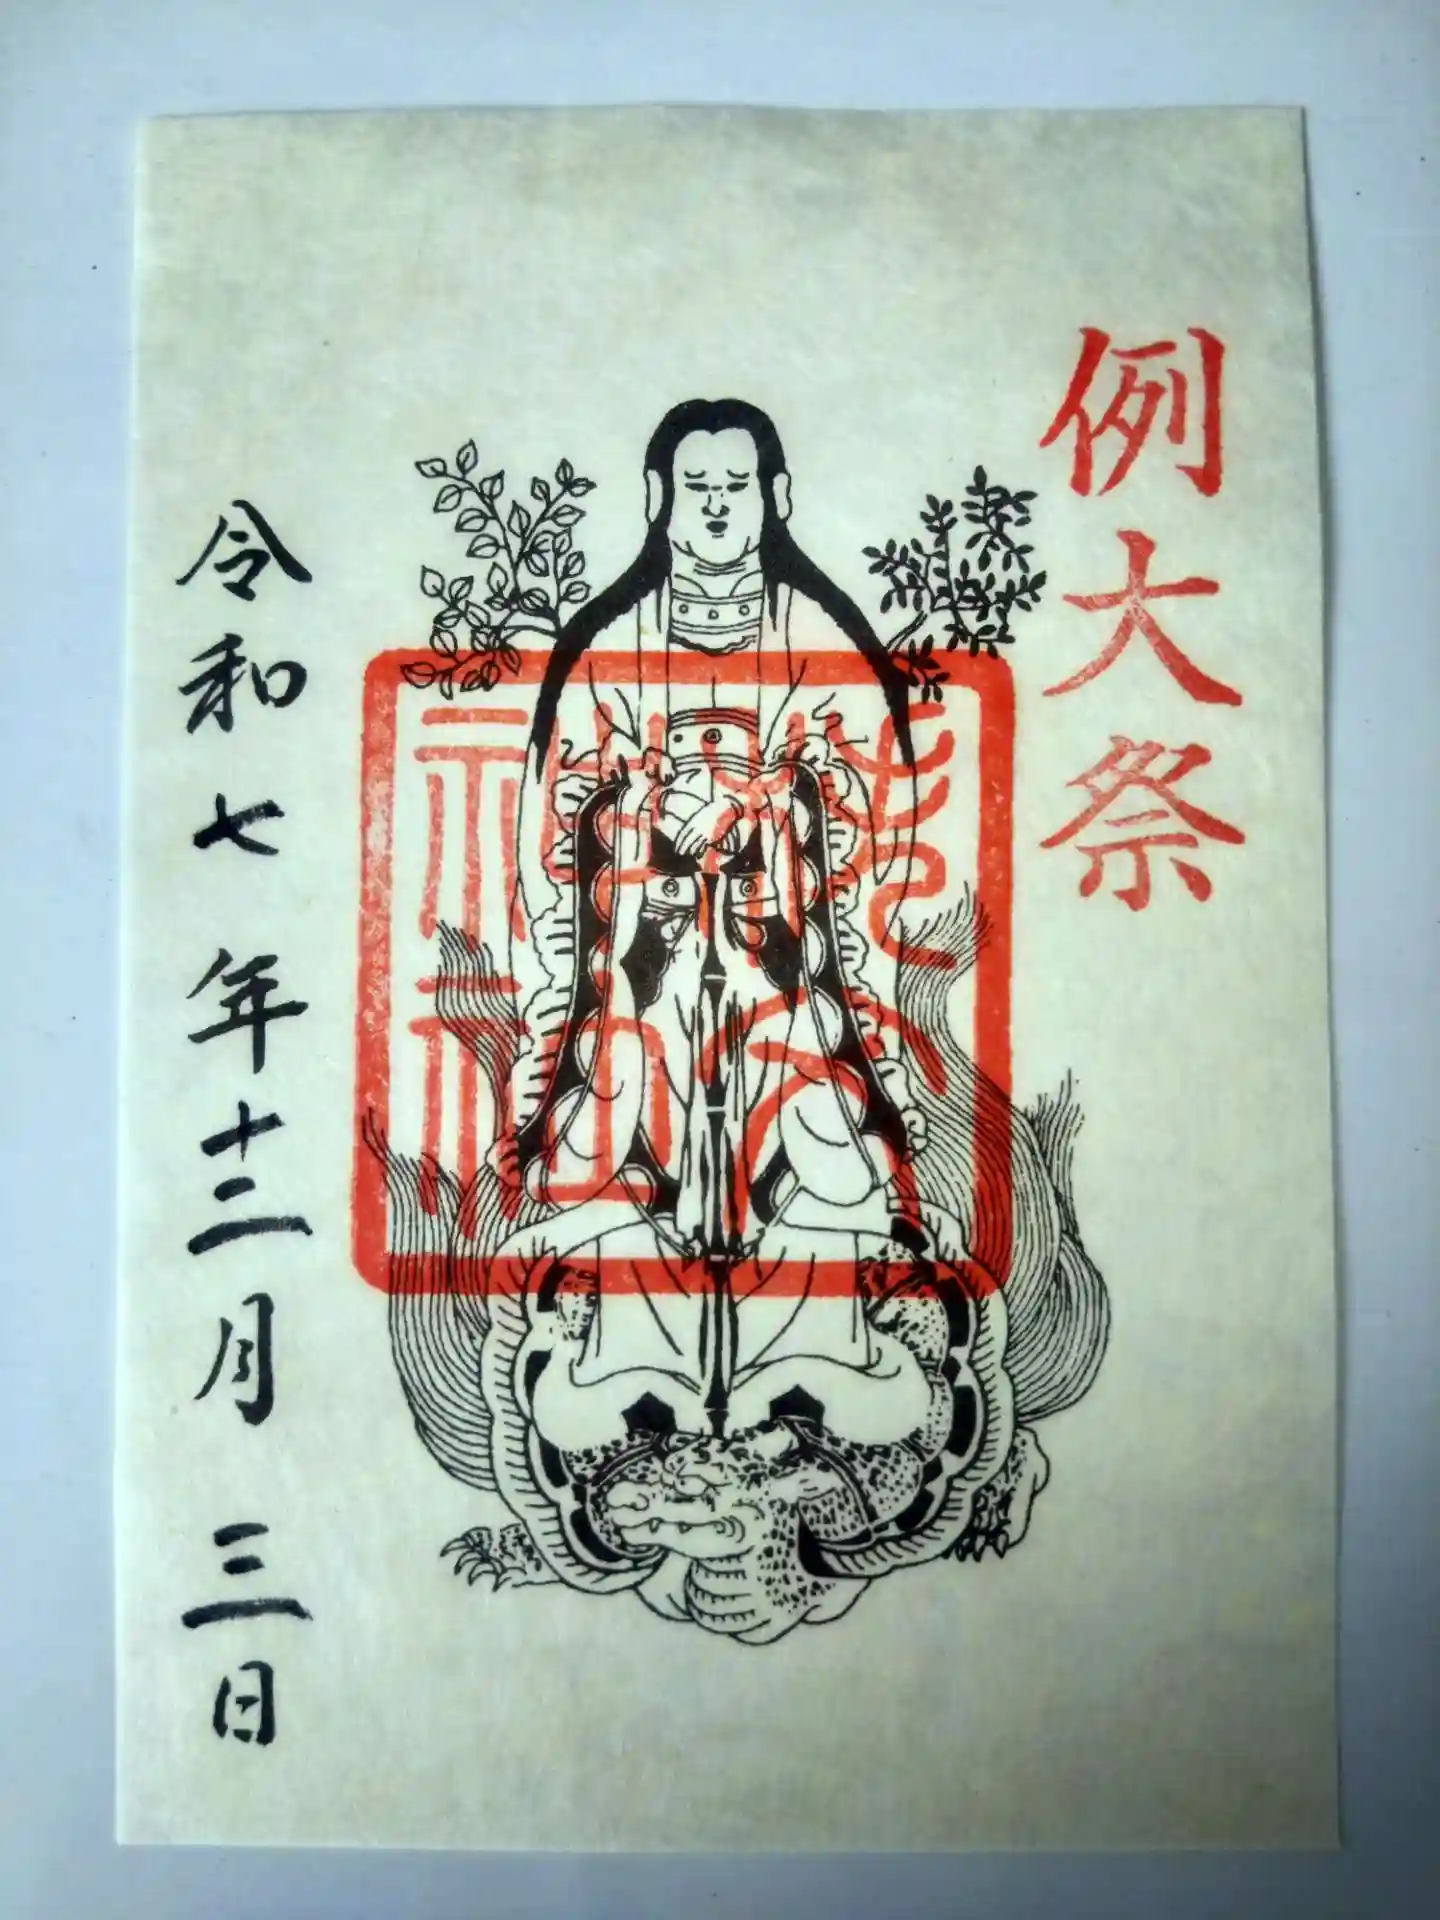 例大祭
秩父
神社
令和七年十二月三日